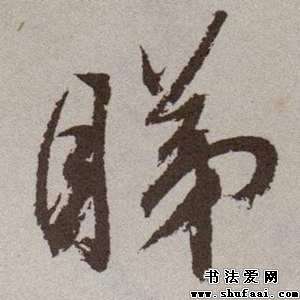 睇
书法爱网
www.shufaai.com